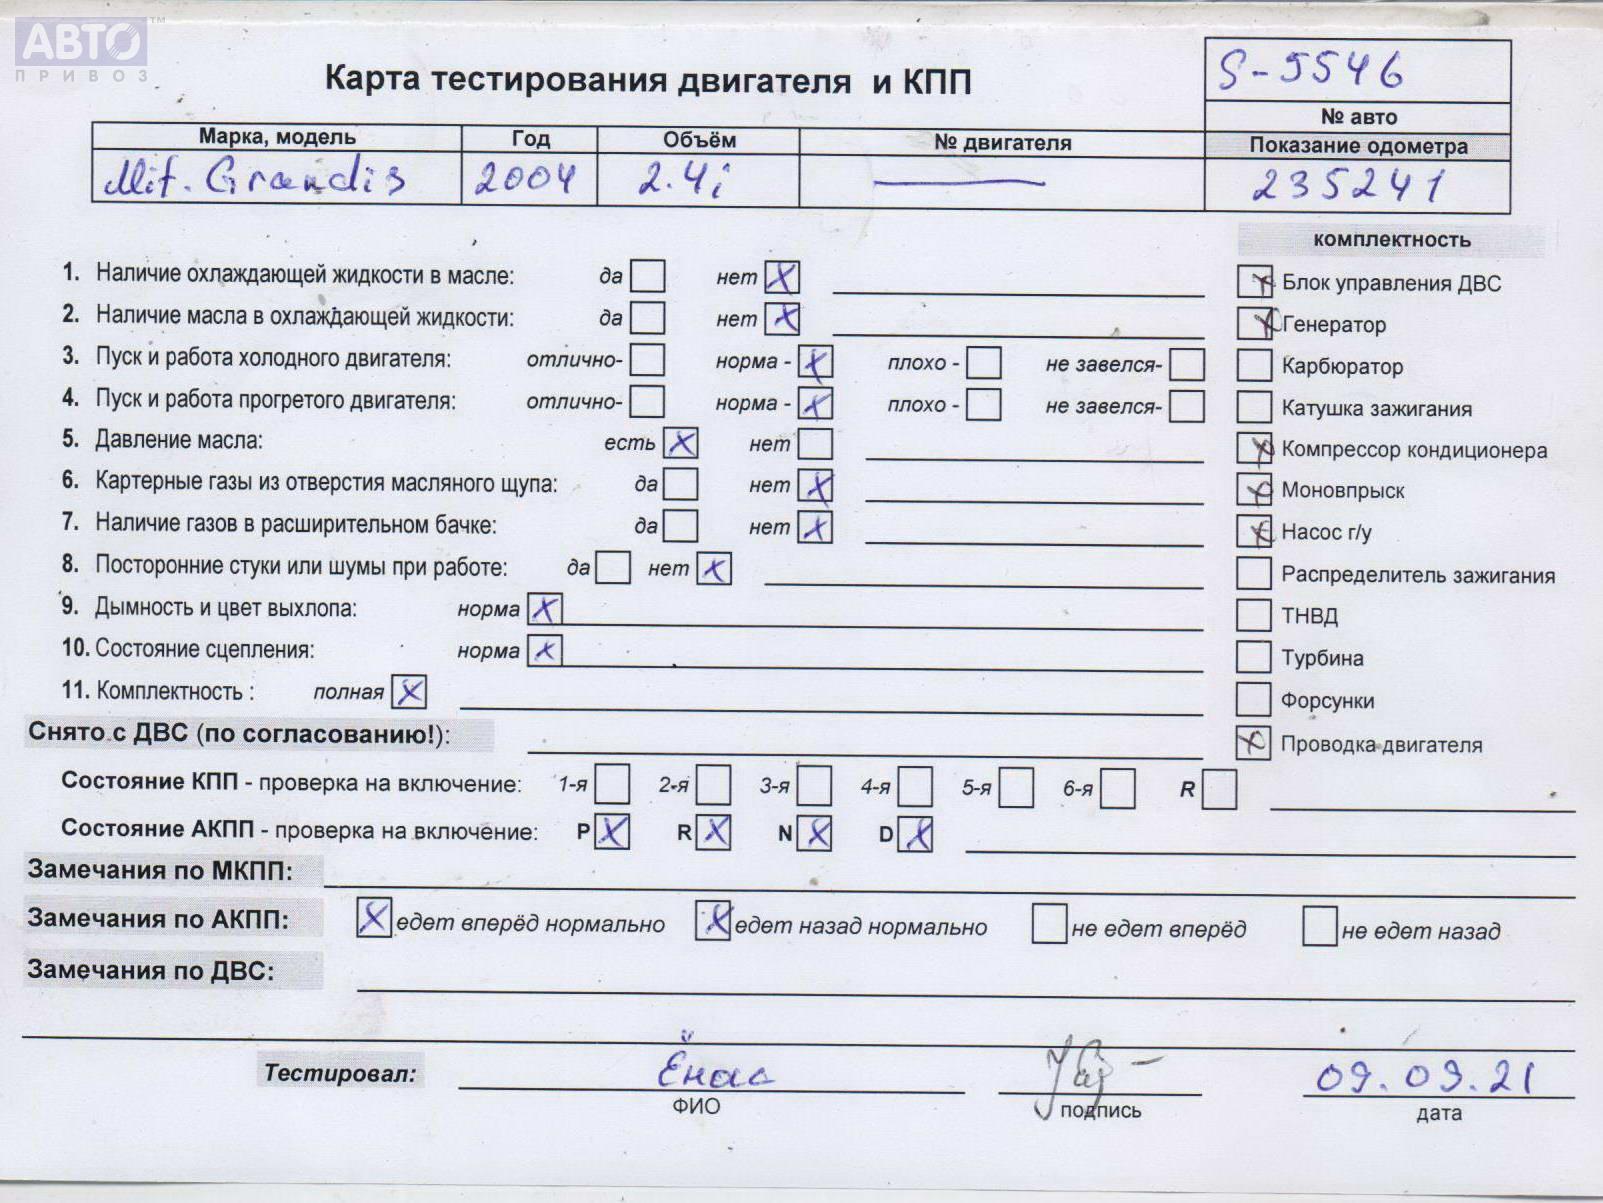 АВТО™
ПРИВОЗ
Карта тестирования двигателя и КПП
S-5546
№ авто
Марка, модель Год Объём № двигателя Показание одометра
Mit. Grandis 2004 2.4i — 235241
комплектность
1. Наличие охлаждающей жидкости в масле: да нет X
X Блок управления ДВС
2. Наличие масла в охлаждающей жидкости: да нет X
X Генератор
3. Пуск и работа холодного двигателя: отлично- норма - X плохо - не завелся-
Карбюратор
4. Пуск и работа прогретого двигателя: отлично- норма - X плохо - не завелся-
Катушка зажигания
5. Давление масла: есть X нет
X Компрессор кондиционера
6. Картерные газы из отверстия масляного щупа: да нет X
X Моновпрыск
7. Наличие газов в расширительном бачке: да нет X
X Насос г/у
8. Посторонние стуки или шумы при работе: да нет X
Распределитель зажигания
9. Дымность и цвет выхлопа: норма X
ТНВД
10. Состояние сцепления: норма X
Турбина
11. Комплектность : полная X
Форсунки
Снято с ДВС (по согласованию!):
X Проводка двигателя
Состояние КПП - проверка на включение: 1-я 2-я 3-я 4-я 5-я 6-я R
Состояние АКПП - проверка на включение: P X R X N X D X
Замечания по МКПП:
Замечания по АКПП: X едет вперёд нормально X едет назад нормально не едет вперёд не едет назад
Замечания по ДВС:
Тестировал: Ёнас 09.09.21
ФИО подпись дата